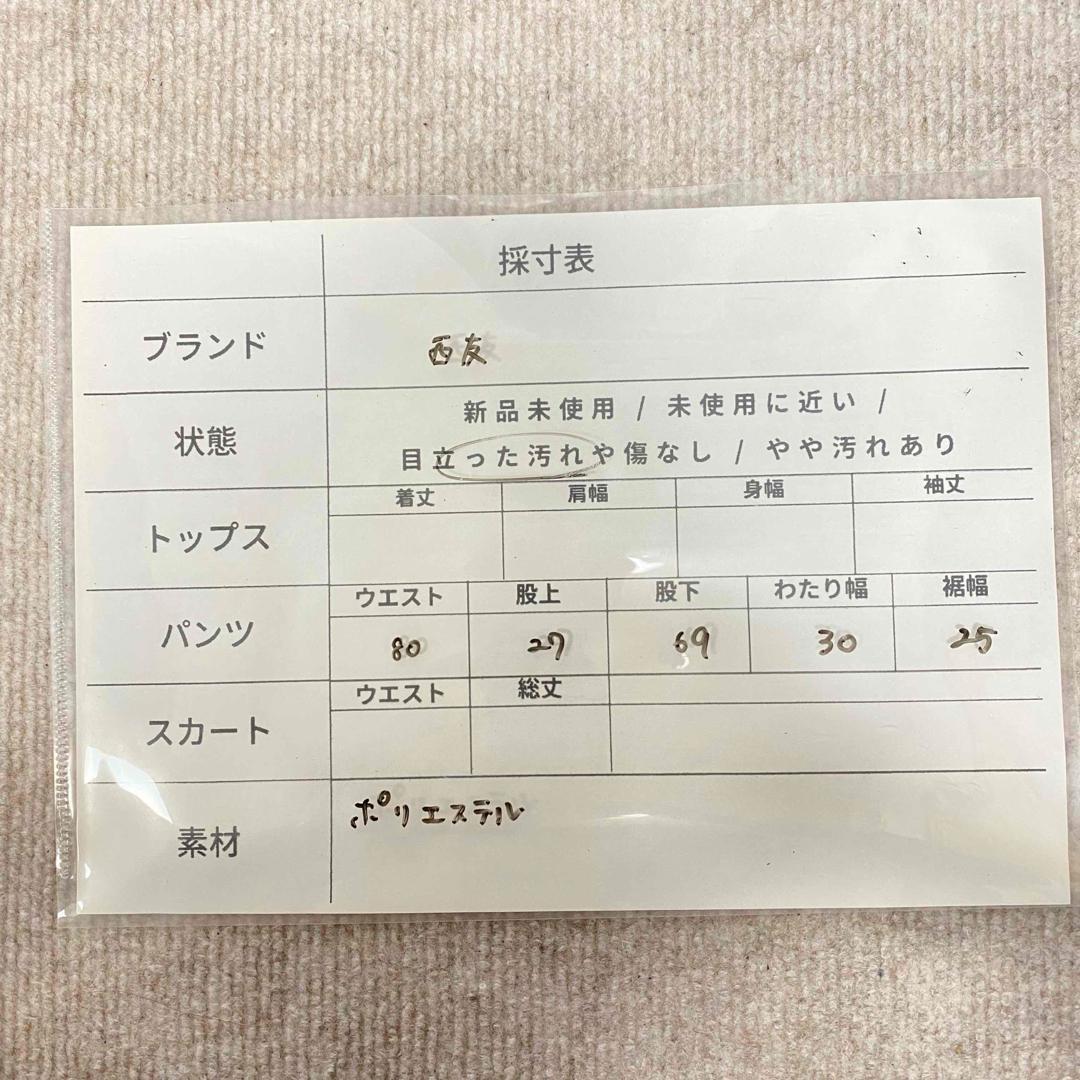 採寸表
ブランド 西友
状態 新品未使用 / 未使用に近い /
目立った汚れや傷なし / やや汚れあり
トップス 着丈 肩幅 身幅 袖丈
パンツ ウエスト 股上 股下 わたり幅 裾幅
80 27 69 30 25
スカート ウエスト 総丈
素材 ポリエステル